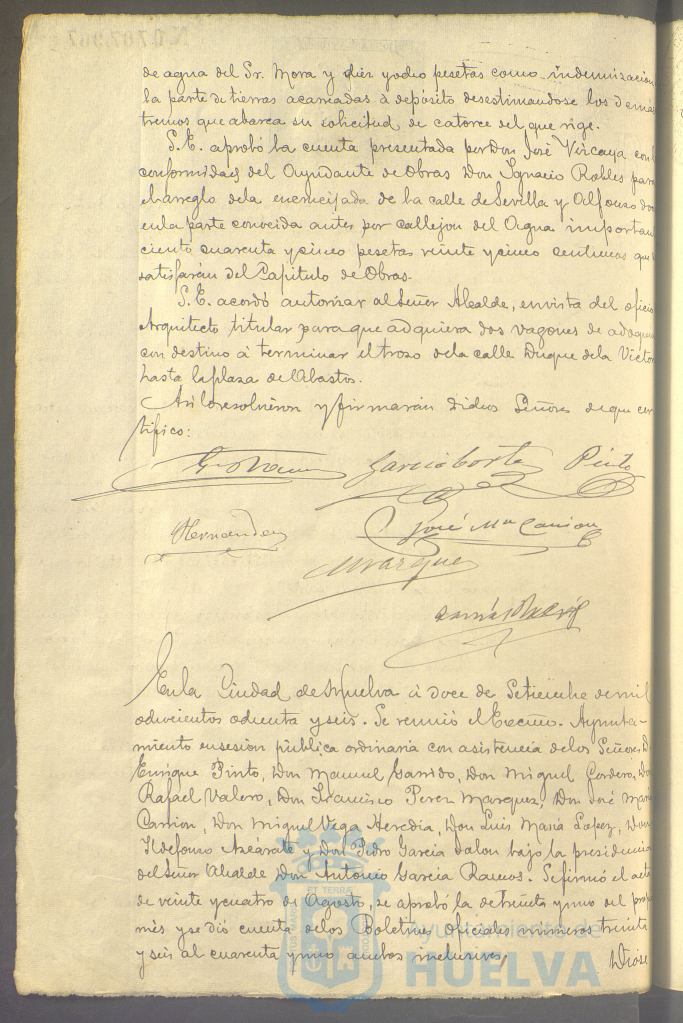 de agua del Sr. Mora y diez y ocho pesetas como indemnización
la parte de tierras acarreadas á depósito desestimandose los demas
tremos que abarca su solicitud de catorce del que rige.
S. E. aprobó la cuenta presentada por Don José Vizcaya con
conformidad del Ayudante de Obras Don Ignacio Robles para
el arreglo de la encrucijada de la calle de Sevilla y Alfonso doce
en la parte conocida antes por callejon del Agua importan
ciento cuarenta y cinco pesetas veinte y cinco centimos que
satisfarán del Capitulo de Obras.
S. E. acordó autorizar al Señor Alcalde, en vista del oficio
Arquitecto titular para que adquiera dos vagones de adoquin
con destino á terminar el trozo de la calle Duque de la Victor
hasta la plaza de Abastos.
Asi lo resolvieron y firmarán dichos Señores de que cer
tifico:
Garcia Cortes Pinto
Hernandez José Ma Carrion
Marquez
En la Ciudad de Huelva á doce de Setiembre de mil
ochocientos ochenta y seis. Se reunió el Excmo. Ayunta-
miento en sesion pública ordinaria con asistencia de los Señores D.
Enrique Pinto, Don Manuel Garrido, Don Miguel Cordero, Don
Rafael Valero, Don Francisco Perez Marquez, Don José Maria
Carrion, Don Miguel Vega Heredia, Don Luis Maria Lopez, Don
Ildefonso Azcarate y Don Pedro Garcia Jalon bajo la presidencia
del Señor Alcalde Don Antonio Garcia Ramos. Se firmó el acta
de veinte y cuatro de Agosto, se aprobó la de treinta y uno del propio
més y se dió cuenta de los Boletines oficiales números treinta
y seis al cuarenta y uno ambos inclusives. Diose
ET TERRÆ
Ayuntamiento de
HUELVA